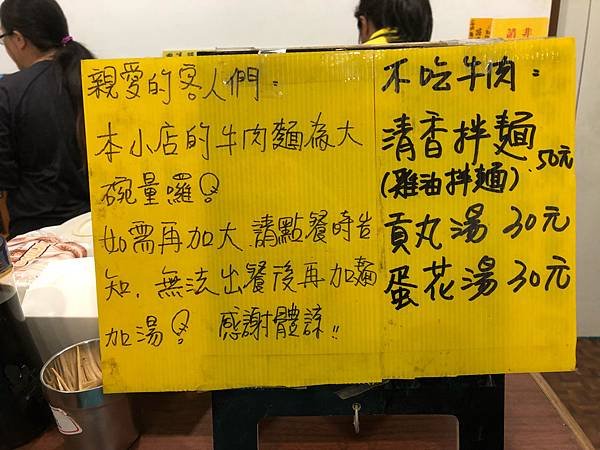 親愛的客人們：
本小店的牛肉麵為大
碗量囉！
如需再加大，請點餐時告
知，無法出餐後再加麵
加湯！ 感謝體諒!!
不吃牛肉：
清香拌麵 50元
(雞油拌麵)
貢丸湯 30元
蛋花湯 30元